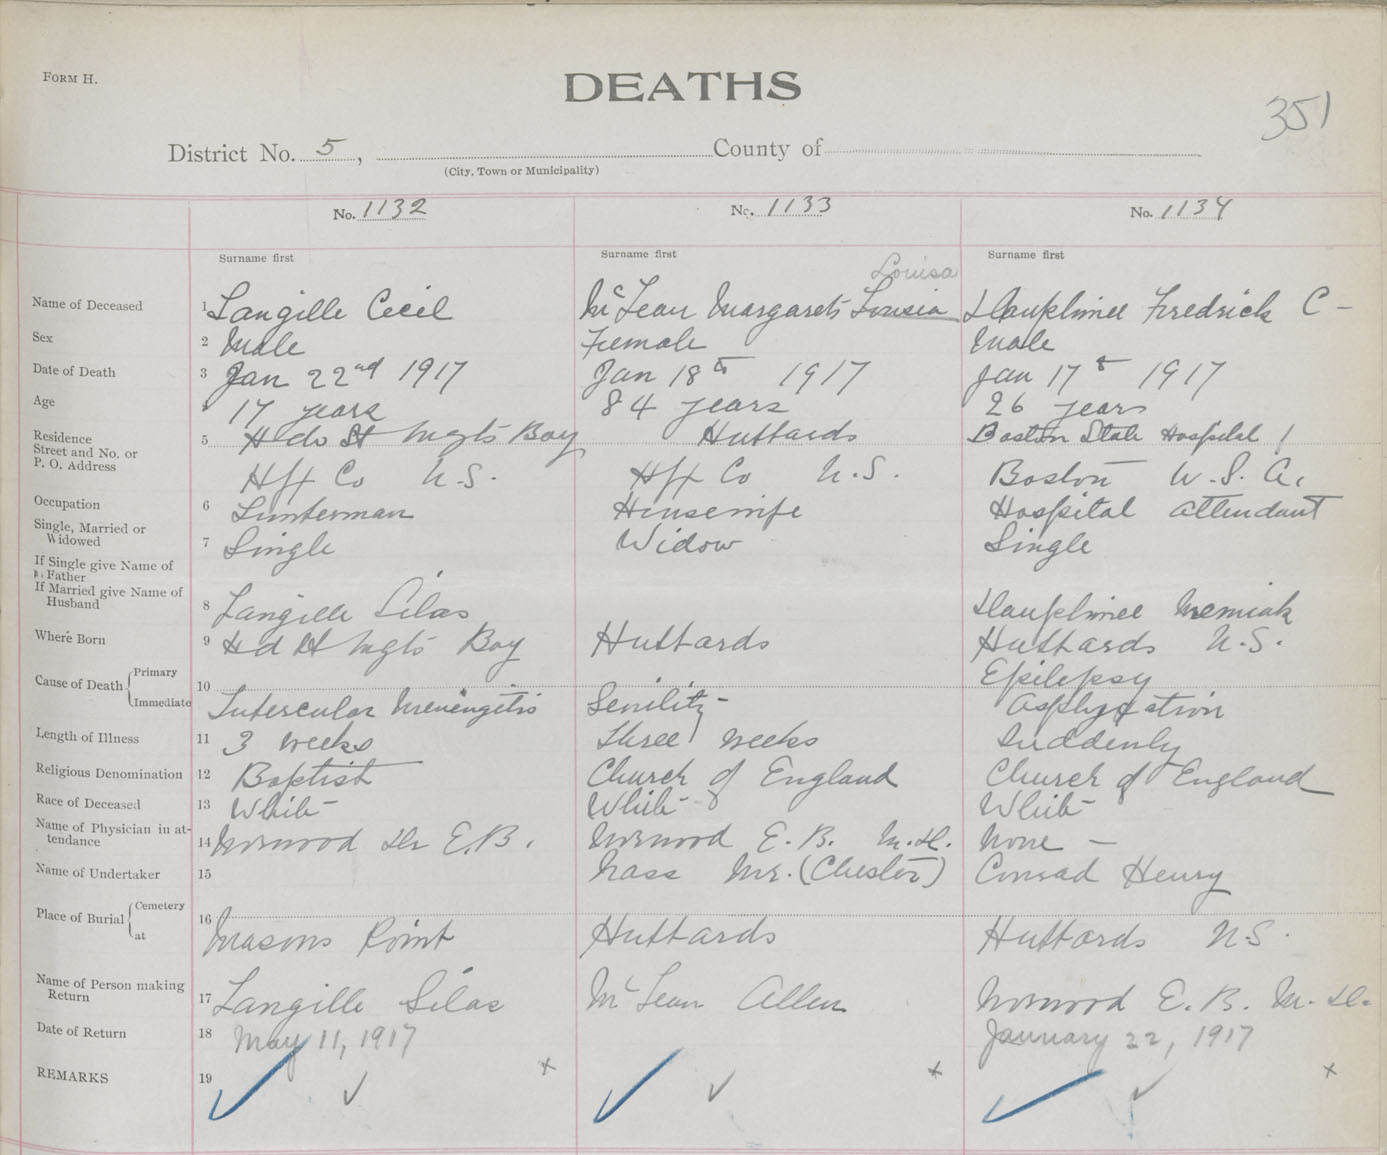 FORM H.
DEATHS
351
District No. 5, County of
(City, Town or Municipality)
No. 1132 No. 1133 No. 1134
Surname first Surname first Surname first
Louisa
Name of Deceased 1 Langille Cecil McLean Margaret Lousia Fredrick C -
Sex 2 Male Female Male
Date of Death 3 Jan 22nd 1917 Jan 18th 1917 Jan 17th 1917
Age 4 17 years 84 years 26 years
Residence 5 Hd St Mgts Bay Hubbards Boston State Hospital
Street and No. or
P. O. Address Hfx Co N.S. Hfx Co N.S. Boston U.S.A.
Occupation 6 Lumberman Housewife Hospital attendant
Single, Married or
Widowed 7 Single Widow Single
If Single give Name of
Father
If Married give Name of
Husband 8 Langille Silas
Where Born 9 Hd St Mgts Bay Hubbards Hubbards N.S.
Cause of Death Primary 10 Epilepsy
Immediate Tubercular Menengitis Senility - Asphyxiation
Length of Illness 11 3 weeks Three weeks Suddenly
Religious Denomination 12 Baptist Church of England Church of England
Race of Deceased 13 White White White
Name of Physician in at-
tendance 14 Norwood Dr E.B. Norwood E.B. M.D. None -
Name of Undertaker 15 Nass Mr. (Chester) Conrad Henry
Place of Burial Cemetery 16
at Masons Point Hubbards Hubbards N.S.
Name of Person making
Return 17 Langille Silas McLean Allen Norwood E.B. M.D.
Date of Return 18 May 11, 1917 January 22, 1917
REMARKS 19